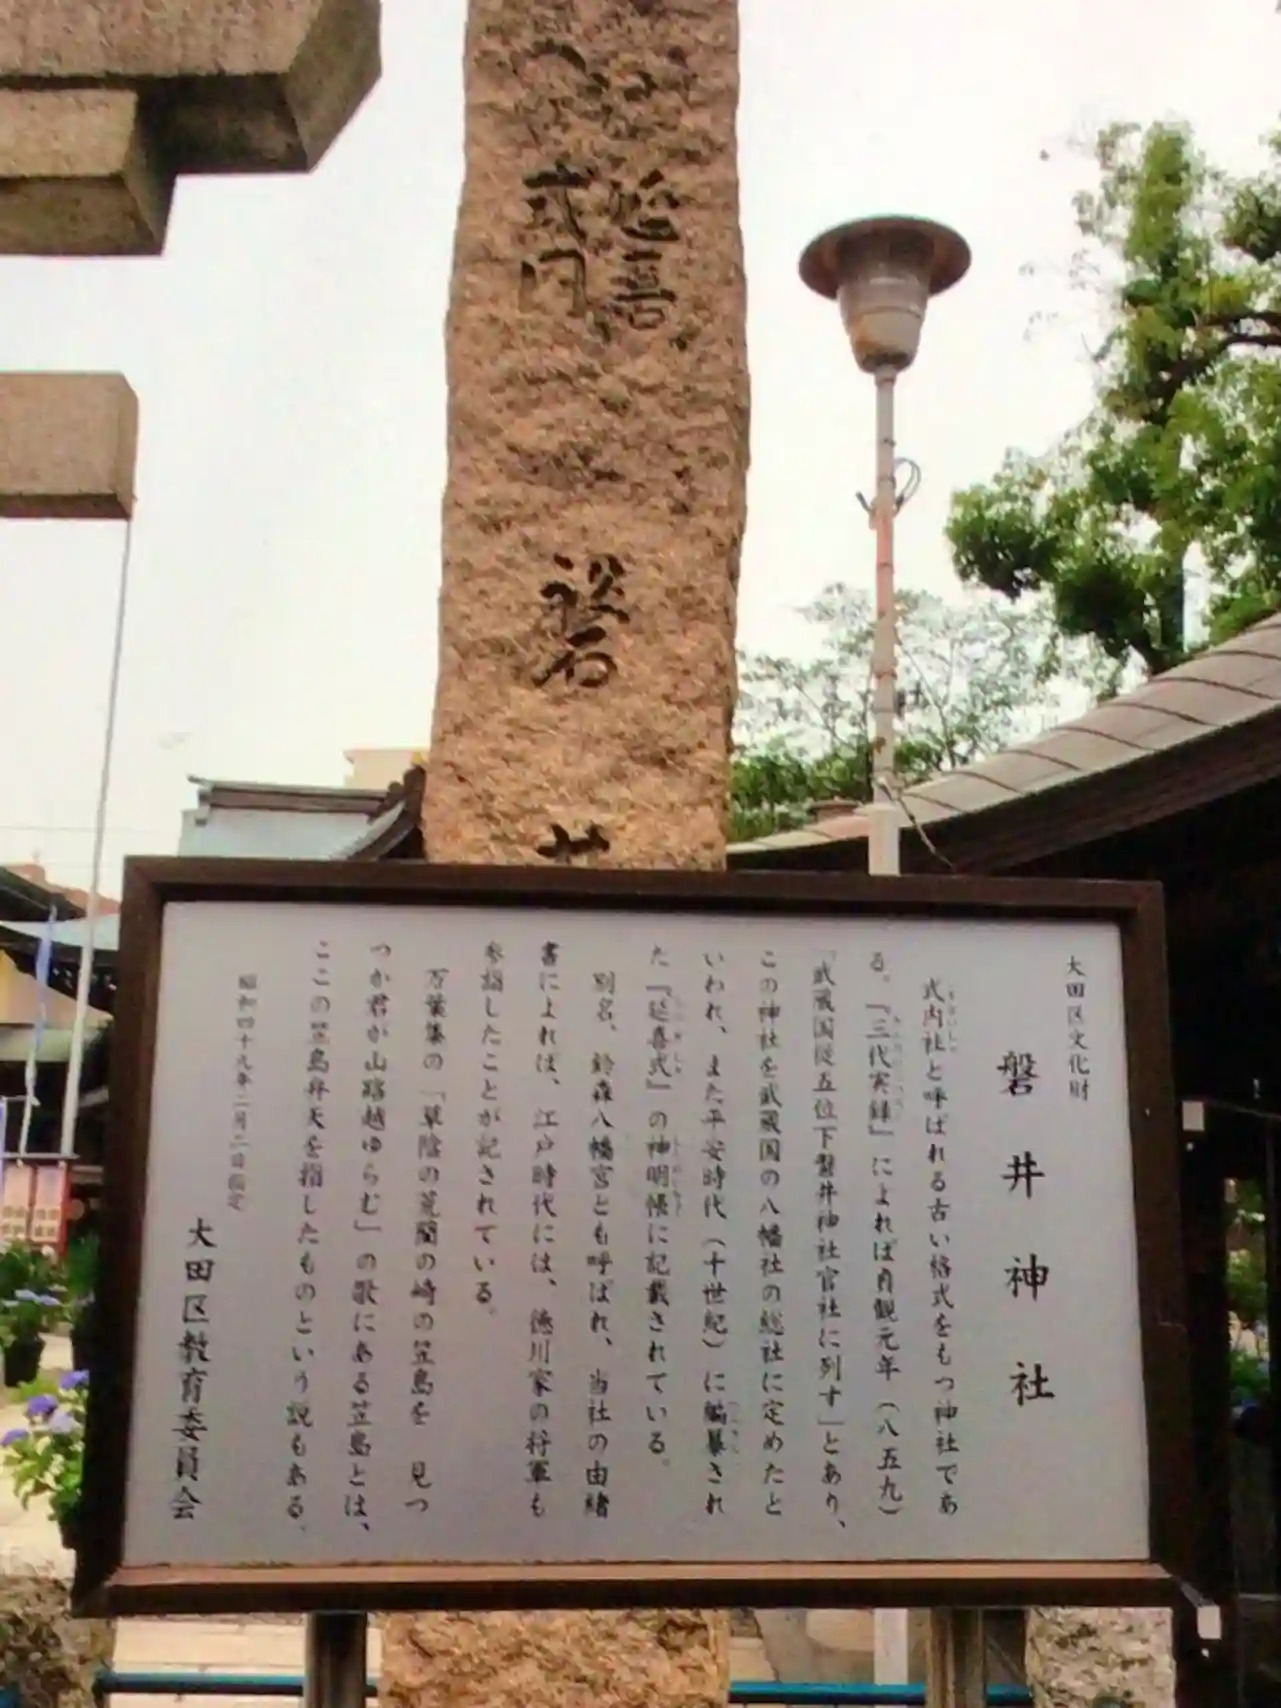 延喜
式内
磐
井
大田区文化財
磐井神社
式内社と呼ばれる古い格式をもつ神社であ
る。『三代実録』によれば貞観元年（八五九）
「武蔵国従五位下磐井神社官社に列す」とあり、
この神社を武蔵国の八幡社の総社に定めたと
いわれ、また平安時代（十世紀）に編纂され
た『延喜式』の神明帳に記載されている。
別名、鈴森八幡宮とも呼ばれ、当社の由緒
書によれば、江戸時代には、徳川家の将軍も
参詣したことが記されている。
万葉集の「草陰の荒藺の崎の笠島を 見つ
つか君が山路越ゆらむ」の歌にある笠島とは、
ここの笠島弁天を指したものという説もある。
昭和四十九年二月二日指定
大田区教育委員会